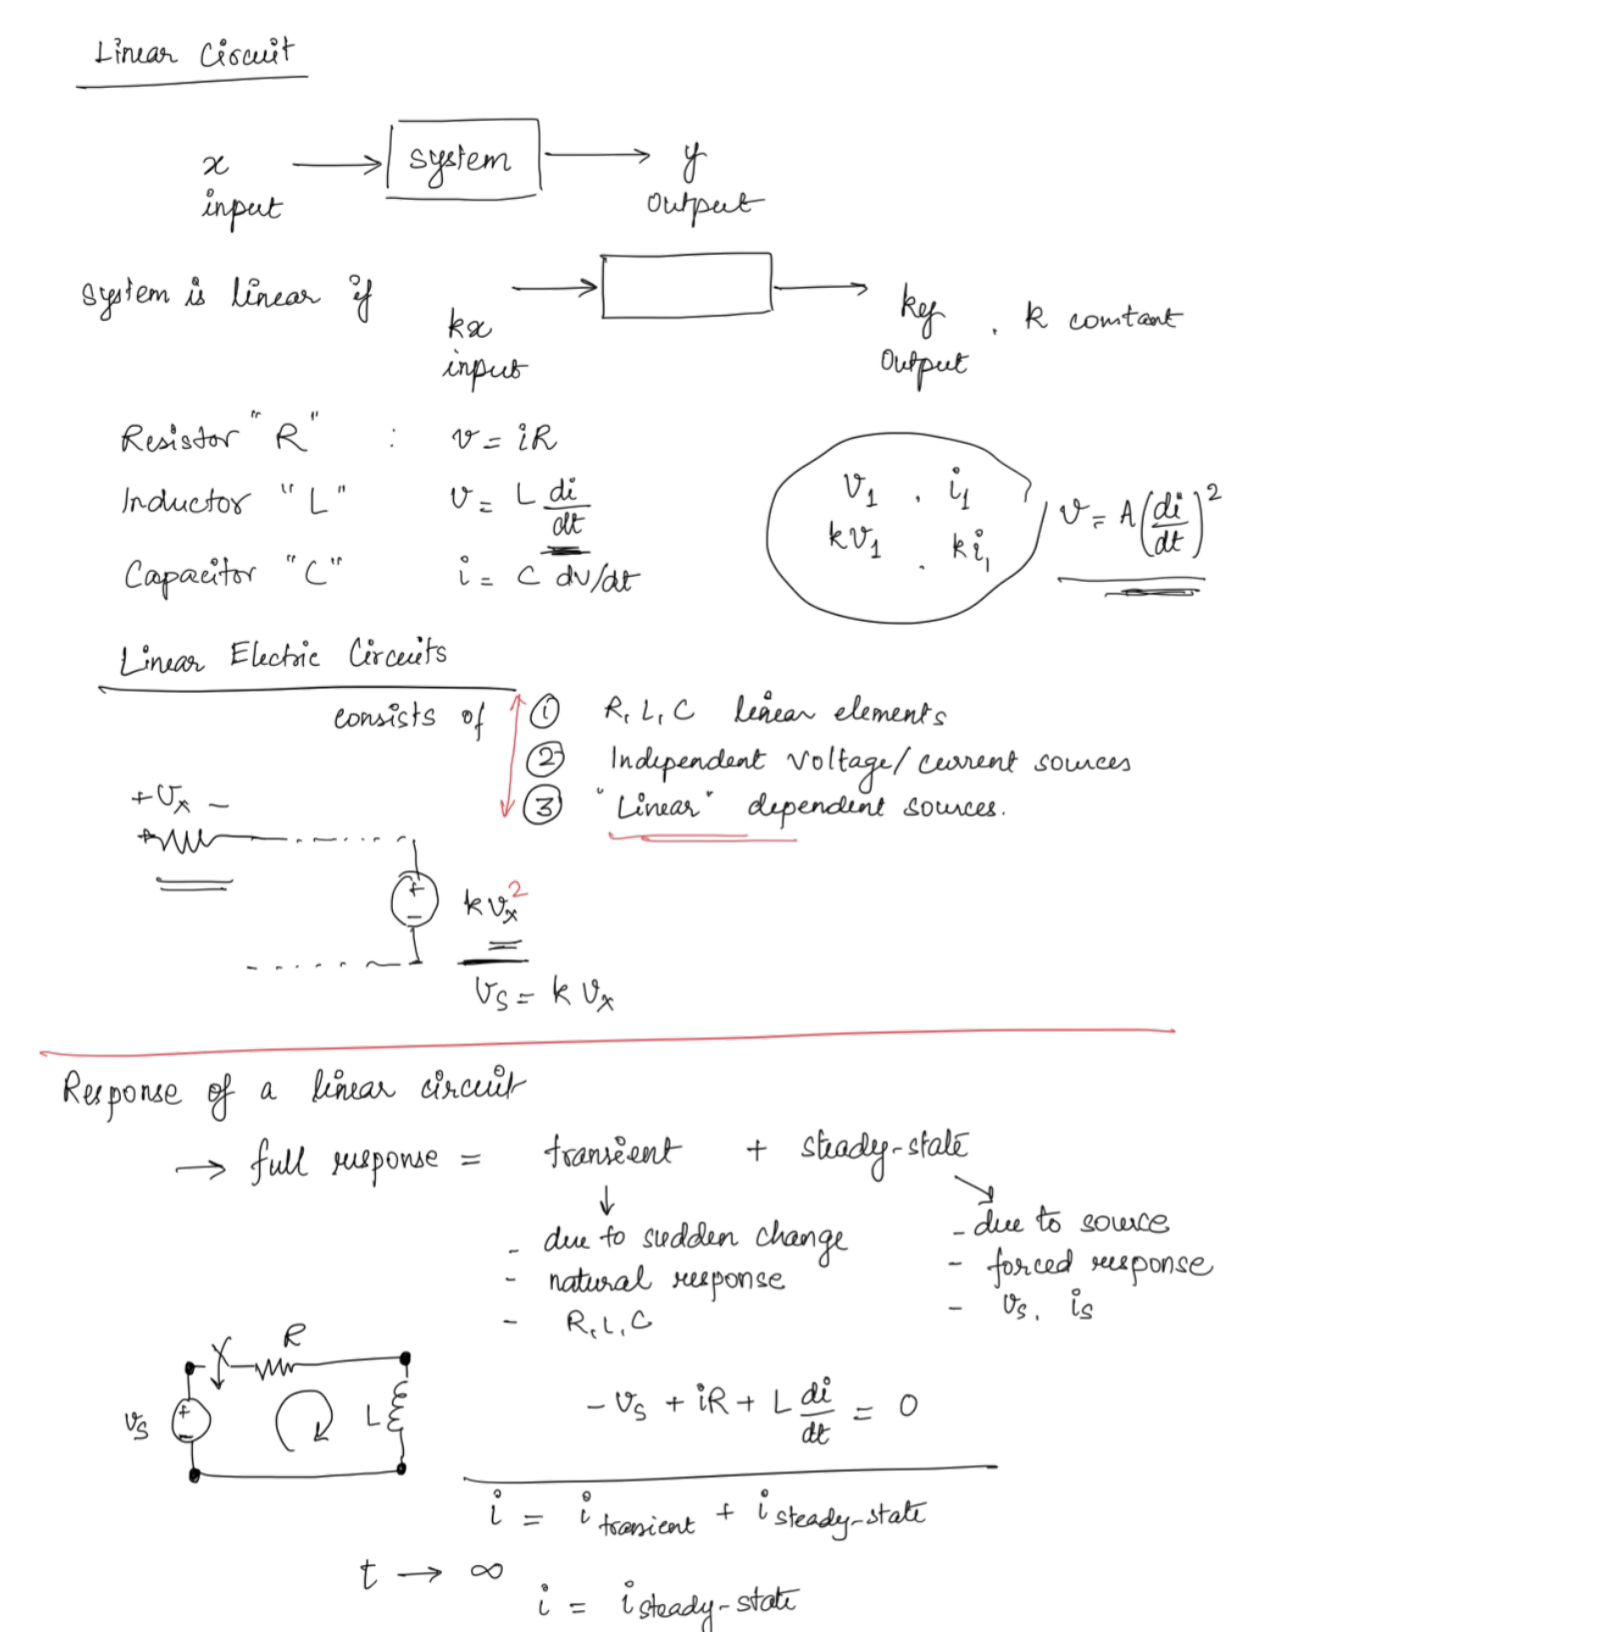 Linear Circuit
x → system → y
input output
system is linear if → →
kx ky , k constant
input output
Resistor "R" : v = iR
Inductor "L" v = L di/dt
Capacitor "C" i = C dv/dt
v₁ , i₁
kv₁ , ki₁
v = A(di/dt)²
Linear Electric Circuits
consists of ① R, L, C linear elements
② Independent voltage/current sources
③ "Linear" dependent sources.
+ vₓ −
+
−
kvₓ²
vₛ = k vₓ
Response of a linear circuit
→ full response = transient + steady-state
↓
- due to sudden change
- natural response
- R, L, C
- due to source
- forced response
- vₛ, iₛ
R
vₛ + − L
− vₛ + iR + L di/dt = 0
i = i transient + i steady-state
t → ∞
i = i steady-state